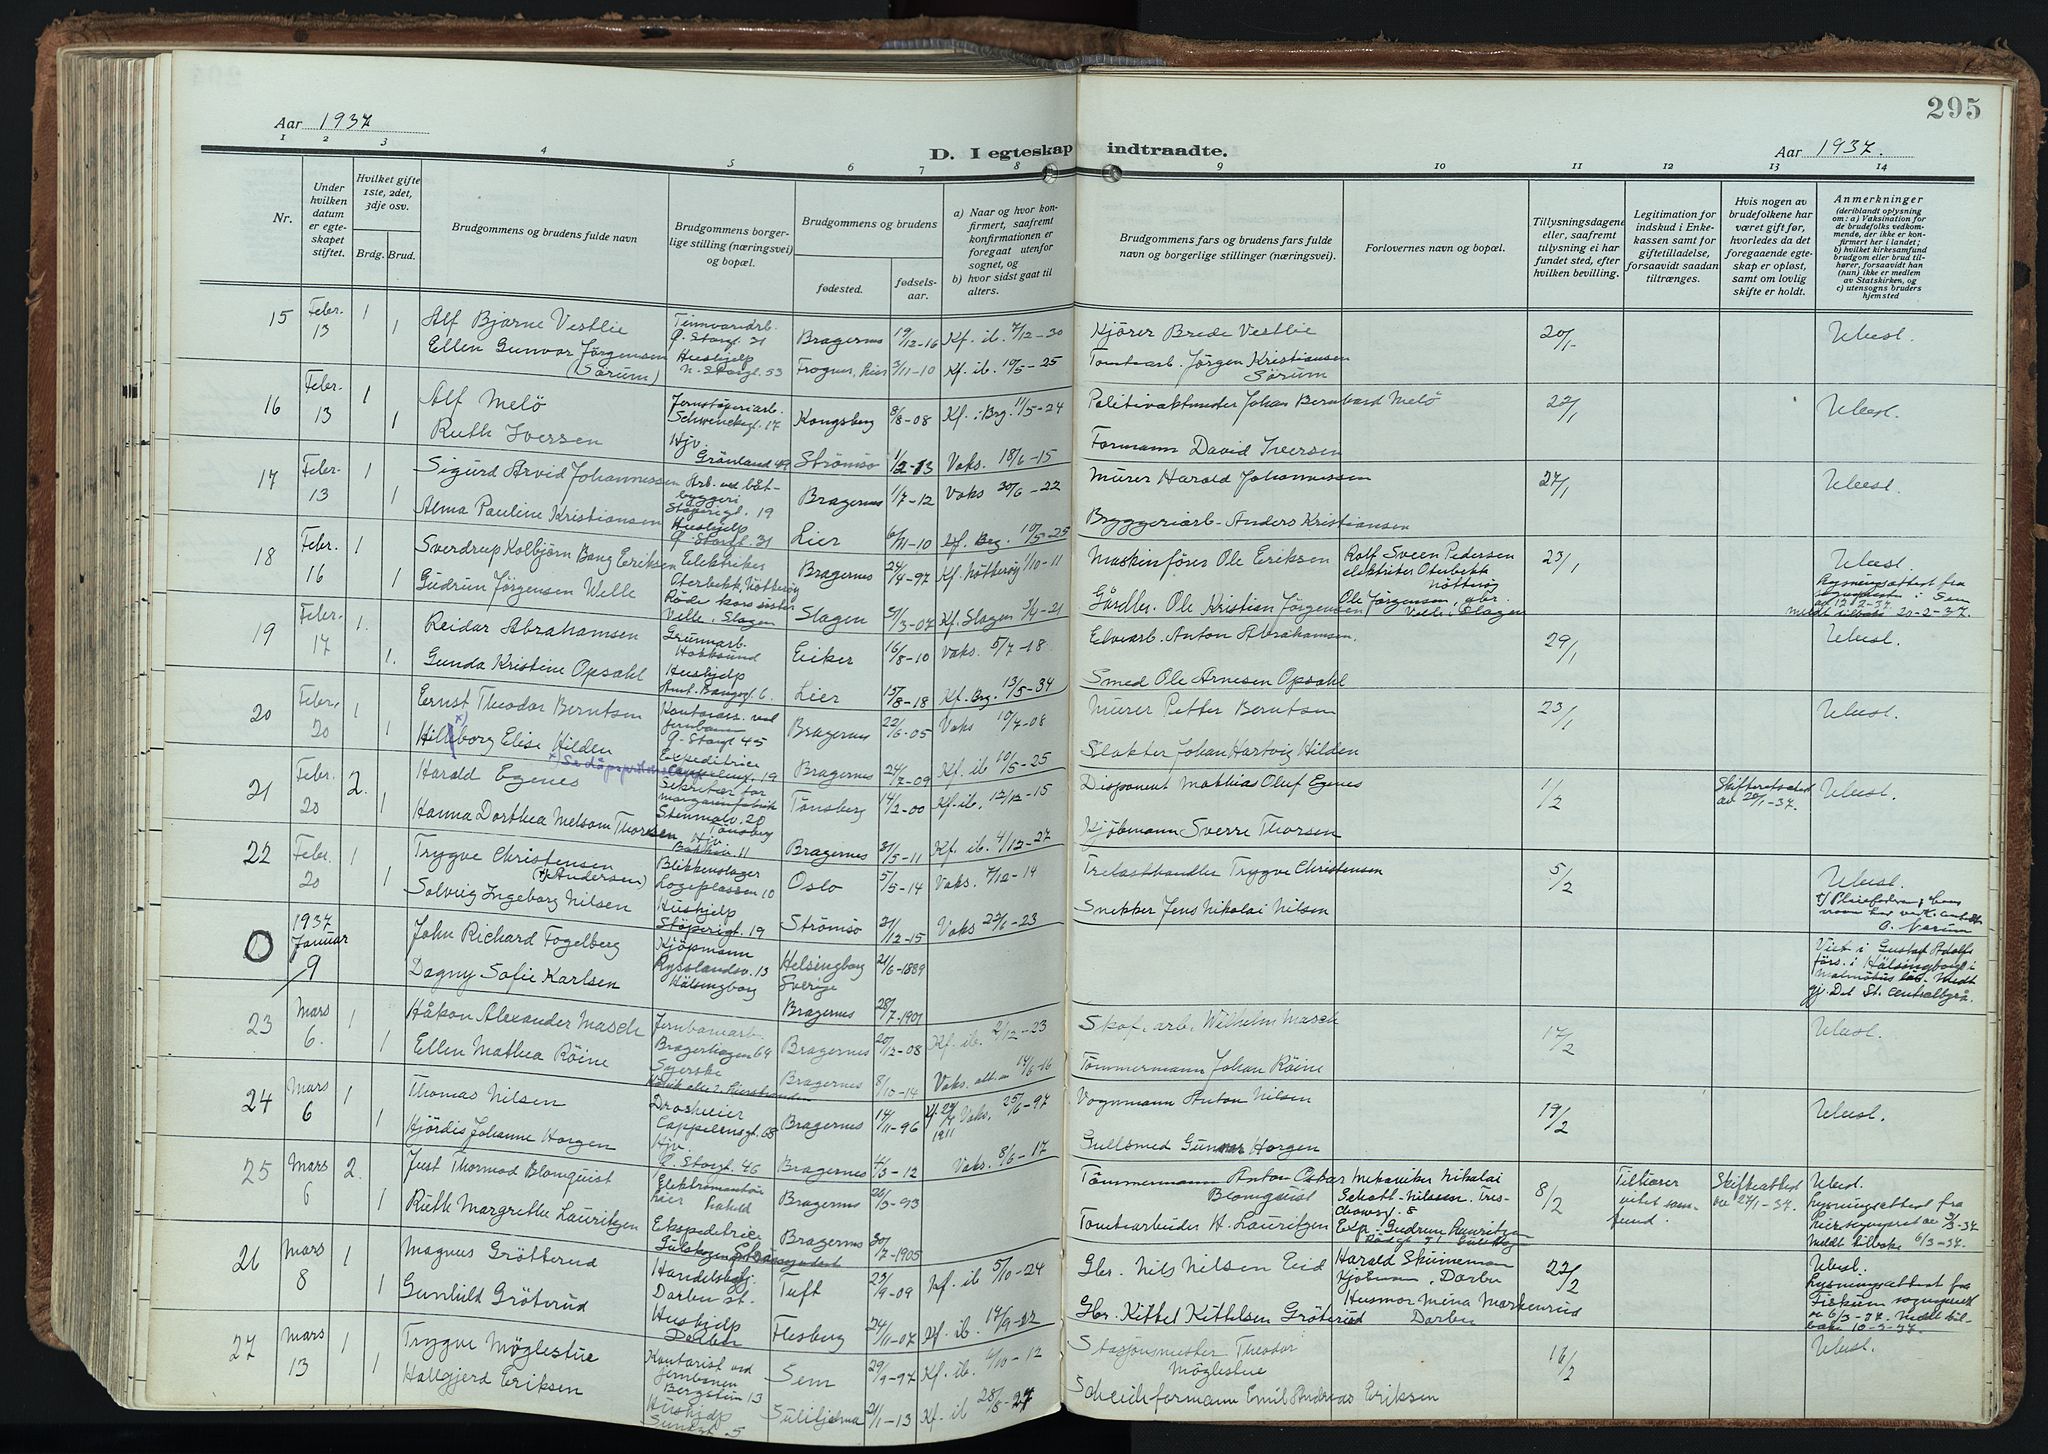 295
Aar 1937
D. I egteskap indtraadte.
Aar 1937.
1 2 3 4 5 6 7 8 9 10 11 12 13 14
Nr.
Under hvilken datum er egteskapet stiftet.
Hvilket gifte 1ste, 2det, 3dje osv.
Brdg. Brud.
Brudgommens og brudens fulde navn
Brudgommens borgerlige stilling (næringsvei) og bopæl.
Brudgommens og brudens
fødested.
fødselsaar.
a) Naar og hvor konfirmert, saafremt konfirmationen er foregaat utenfor sognet, og
b) hvor sidst gaat til alters.
Brudgommens fars og brudens fars fulde navn og borgerlige stillinger (næringsvei).
Forlovernes navn og bopæl.
Tillysningsdagene eller, saafremt tillysning ei har fundet sted, efter hvilken bevilling.
Legitimation for indskud i Enkekassen samt for giftetilladelse, forsaavidt saadan tiltrænges.
Hvis nogen av brudefolkene har været gift før, hvorledes da det foregaaende egteskap er opløst, samt om lovlig skifte er holdt.
Anmerkninger
(deriblandt oplysning om: a) Vaksination for de brudefolks vedkommende, der ikke er konfirmert her i landet; b) hvilket kirkesamfund brudgom eller brud tilhører, forsaavidt han (hun) ikke er medlem av Statskirken, og c) utensogns bruders hjemsted
15 Febr. 13 1 Alf Bjarne Vestlie Ø. Storgt. 31 Bragernes 19/12-16 Kf. ib. 7/12-30 Kjører Brede Vestlie 20/1 Ubesl.
1 Ellen Gunvor Jørgensen (Sørum) Hushjelp N. Storgt. 53 Frogner, Lier 3/11-10 Kf. ib. 10/5-25 Tomtearb. Jørgen Kristiansen Sørum
16 Febr. 13 1 Alf Melö Jernstøperiarb. Schwenckegt. 17 Kongsberg 8/8-08 Kf. i Brg. 11/5-24 Johan Bernhard Melö 22/1 Ubesl.
1 Ruth Iversen Hjv. Grönland 49 Strömsö 1/2-13 Vaks. 18/6-15 Formann David Iversen
17 Febr. 13 1 Sigurd Arvid Johannessen Arb. ved båtbyggeri Støperigt. 19 Bragernes 1/7-12 Vaks 30/6-22 Murer Harald Johannessen 27/1 Ubesl.
1 Alma Pauline Kristiansen Hushjelp Ø. Storgt. 31 Lier 6/11-10 Kf. Brg. 10/5-25 Bryggeriarb. Anders Kristiansen
18 Febr. 16 1 Sverdrup Kolbjörn Bang Eriksen Elektriker Oterbekk Nötteröy Bragernes 24/4-97 Kf. Nötteröy 1/10-11 Maskinförer Ole Eriksen Rolf Sveen Pedersen elektriker Oterbekk Nötteröy 23/1 Ubesl.
1 Gudrun Jørgensen Welle Røde kors söster Velle i Slagen Slagen 5/3-07 Kf. Slagen 3/4-21 Gårdbr. Ole Kristian Jørgensen Ole Jørgensen, gbr. Velle i Slagen Lysningsattest fra i Sem av 12-2-37. meldt tilbake 20-2-37.
19 Febr. 17 1. Reidar Abrahamsen Grunnarb. Hokksund Eiker 16/8-10 Vaks. 5/7-18 Elvearb. Anton Abrahamsen 29/1 Ubesl.
1. Gunda Kristine Opsahl Hushjelp Amt. Bangsgt. 6. Lier 15/8-18 Kf. Brg. 13/5-34 Smed Ole Arnesen Opsahl
20 Febr. 20 1 Ernst Theodor Berntsen Kontorass. ved jernbanen Ø. Storgt. 45 Bragernes 22/6-05 Vaks 10/7-08 Murer Petter Berntsen 23/1 Ubesl.
1 Hildeborg Elise Hilden Expeditrice Cappelensgt. 19 Bragernes 24/7-09 Kf. ib 10/5-25 Slakter Johan Hartvig Hilden
21 Febr. 20 2. Harald Egenes Sekretær for margarinfabrik Stenmalv. 20 Tönsberg Tönsberg 14/2-00 Kf. ib. 12/12-15 Disponent Mathias Oluf Egenes 1/2 Skifteattest av 20/1-37. Ubesl.
1 Hanna Dorthea Melsom Thorsen Hjv. Bakkein 11 Bragernes 31/5-11 Kf. ib. 4/12-27 Kjøbmann Sverre Thorsen
22 Febr. 20 1 Trygve Christensen (Andersen) Blikkenslager Logeplassen 10 Oslo 5/5-14 Vaks. 7/12-14 Trelasthandler Trygve Christensen 5/2 Ubesl.
1 Solvig Ingeborg Nilsen Hushjelp Støperigt. 19 Strömsö 31/12-15 Vaks 22/6-23 Snekker Jens Nikolai Nilsen
O 1937 Januar 9 John Richard Fogelberg Kjöpmann Rysslandsv. 13 Hälsingborg Helsingborg Sverige 21/6-1889 Viet i Gustaf Adolfs förs. i Hälsingborg i Malmöhus län. Medt gj. Det St. Centralbyrå.
Dagny Sofie Karlsen Bragernes 28/7-1901
23 Mars 6. 1 Håkon Alexander Masch Jernbanearb. Bragerhagen 64 Bragernes 20/12-08 Kf. ib. 2/12-23 Skof. arb. Wilhelm Masch 17/2 Ubesl.
1 Ellen Mathea Röine Syerske Bragernes 8/10-14 Vaks. att. av 14/6-16 Tømmermann Johan Röine
24 Mars 6 1 Thomas Nilsen Droskeeier Cappelensgt. 68 Bragernes 14/11-96 Kf 24/4 1911 Vaks. 25/6-97 Vognmann Anton Nilsen 19/2 Ubesl.
1 Hjördis Johanne Horgen Hjv. Ø. Storgt. 46 Bragernes 4/3-12 Vaks. 8/6-17 Gullsmed Gunnar Horgen
25 Mars 6 2. Just Thormod Blomquist Elektromontör Lier Bragernes 26/3-93 Tømmermann Anton Oskar Blomquist Mekaniker Nikolai Schott-Nilssen. 8/2 Tilhører intet samfund. Skifteattest av 27/1-37. Ubesl.
1 Ruth Margrethe Lauritzen Ekspeditrice Bragernes 30/7-1905 Tomtearbeider H. Lauritzen Exp. Gudrun Lauritzen Lysningsattest fra Lier sogneprest av 3/3-37. Meldt tilbake 6/3-37.
26 Mars 8 1 Magnus Gröttereud Handelsbetj. Darbu st. Tuft 23/9-09 Kf. ib 5/10-24 Gbr. Nils Nilsen Eid Harald Skuineman Kjöbmann, Darbu 22/2 Ubesl.
1 Gunhild Gröterud Hushjelp Darbu Flesberg 24/11-07 Kf. ib. 14/9-22 Gbr. Kittel Kittelsen Gröterud Husmor Mina Markenrud Darbu Lysningsattest fra Fiskum sogneprest av 6/3-37. Meldt tilbake 10-3-37.
27 Mars 13 1 Trygve Möglestue Kontorist ved jernbanen Bergstien 13 Sem 29/9-97 Kf. ib. 6/10-12 Stasjonsmester Theodor Möglestue 16/2 Ubesl.
1 Hallgjerd Eriksen Hushjelp Sundgt. 5 Sulitjelma 21/1-13 Kf. ib 28/8-27 Scheideformann Emil Andreas Eriksen